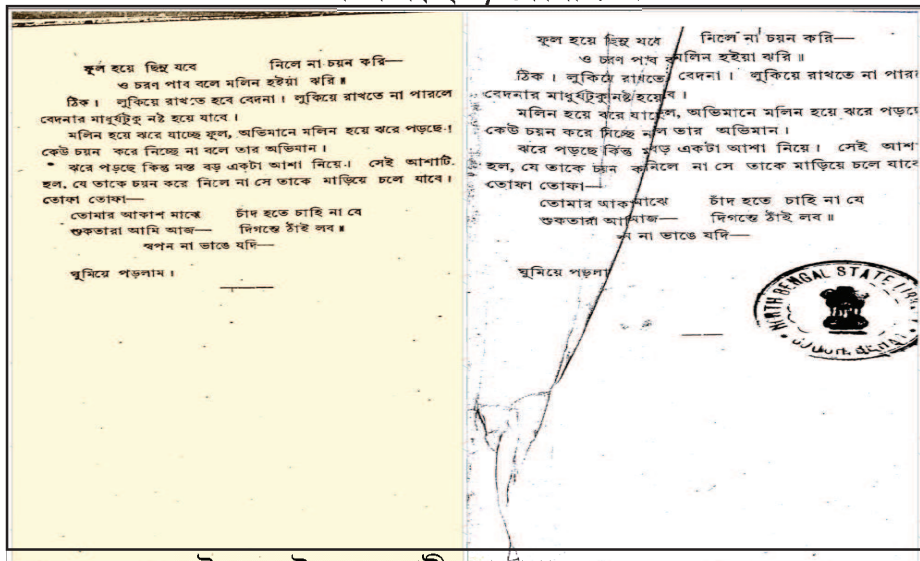 ফুল হয়ে ছিনু যবে নিলে না চয়ন করি—
ও চরণ পাব বলে মলিন হইয়া ঝরি॥
ঠিক। লুকিয়ে রাখতে হবে বেদনা। লুকিয়ে রাখতে না পারলে
বেদনার মাধুর্যটুকু নষ্ট হয়ে যাবে।
মলিন হয়ে ঝরে যাচ্ছে ফুল, অভিমানে মলিন হয়ে ঝরে পড়ছে।
কেউ চয়ন করে নিচ্ছে না বলে তার অভিমান।
ঝরে পড়ছে কিন্তু মস্ত বড় একটা আশা নিয়ে। সেই আশাটি
হল, যে তাকে চয়ন করে নিলে না সে তাকে মাড়িয়ে চলে যাবে।
তোফা তোফা—
তোমার আকাশ মাঝে চাঁদ হতে চাহি না যে
শুকতারা আমি আজ— দিগন্তে ঠাঁই লব॥
স্বপন না ভাঙে যদি—
ঘুমিয়ে পড়লাম।
ফুল হয়ে ছিনু যবে নিলে না চয়ন করি—
ও চরণ পাব মলিন হইয়া ঝরি॥
ঠিক। লুকিয়ে রাখতে বেদনা। লুকিয়ে রাখতে না পার
বেদনার মাধুর্যটুকু নষ্ট হয়ে বে।
মলিন হয়ে ঝরে ফুল, অভিমানে মলিন হয়ে ঝরে পড়ে
কেউ চয়ন করে নিচ্ছে না তার অভিমান।
ঝরে পড়ছে কিন্তু বড় একটা আশা নিয়ে। সেই আশ
হল, যে তাকে নিলে না সে তাকে মাড়িয়ে চলে যাবে
তোফা তোফা—
তোমার মাঝে চাঁদ হতে চাহি না যে
শুকতারা আজ— দিগন্তে ঠাঁই লব॥
না ভাঙে যদি—
ঘুমিয়ে পড়লা
NORTH BENGAL STATE